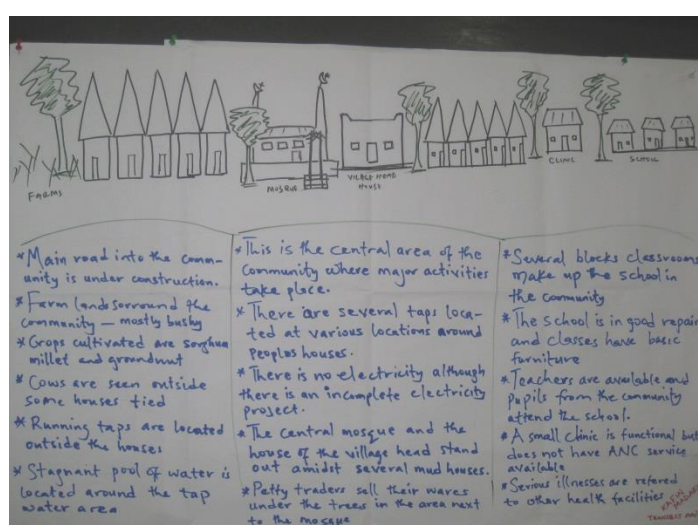 FARMS
MOSQUE
VILLAGE HEAD
HOUSE
CLINIC
SCHOOL
* Main road into the comm-
unity is under construction.
* Farm lands sorround the
community — mostly bushy
* Crops cultivated are sorghum
millet and groundnut
* Cows are seen outside
some houses tied
* Running taps are located
outside the houses
* Stagnant pool of water is
located around the tap
water area
* This is the central area of the
community where major activities
take place.
* There are several taps loca-
ted at various locations around
peoples houses.
* There is no electricity although
there is an incomplete electricity
project.
* The central mosque and the
house of the village head stand
out amidst several mud houses.
* Petty traders sell their wares
under the trees in the area next
to the mosque
* Several blocks classrooms
make up the school in
the community
* The school is in good repair
and classes have basic
furniture
* Teachers are available and
pupils from the community
attend the school.
* A small clinic is functional but
does not have ANC service
available
* Serious illnesses are refered
to other health facilities